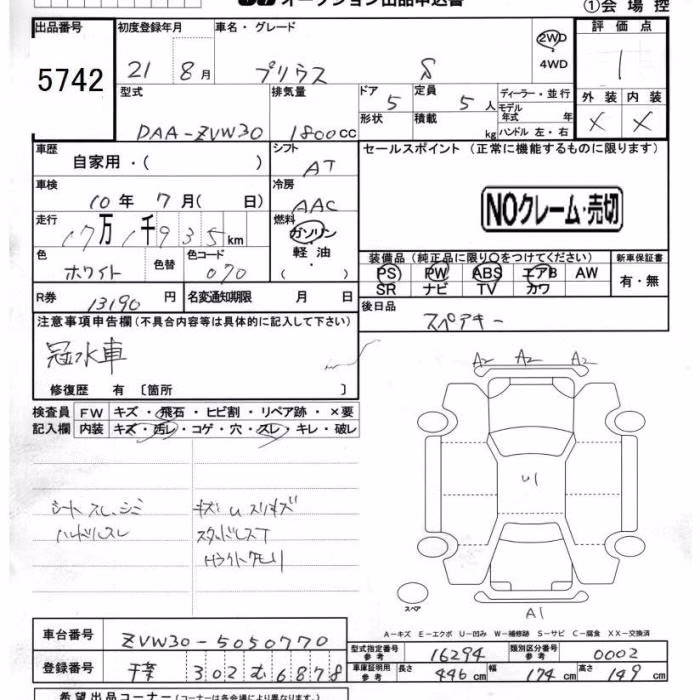 オークション出品申込書
①会場控
出品番号 初度登録年月 車名・グレード 評価点
5742 21 8月 プリウス S 2WD 4WD 1
型式 排気量 ドア 5 定員 5人 ディーラー・並行 外装 内装
DAA-ZVW30 1800cc 形状 積載 kg モデル年式 年 ハンドル 左・右 × ×
車歴 自家用・( ) シフト AT セールスポイント(正常に機能するものに限ります)
車検 10年 7月( 日) 冷房 AAC
NOクレーム・売切
走行 17万1千935km 燃料 ガソリン・軽油・( )
色 ホワイト 色替 色コード 070
装備品(純正品に限り○をつけてください) 新車保証書
PS PW ABS エアB AW 有・無
SR ナビ TV カワ
R券 13190円 名変通知期限 月 日
後日品 スペアキー
注意事項申告欄(不具合内容等は具体的に記入して下さい)
冠水車
修復歴 有 〔箇所 〕
検査員 FW キズ・飛石・ヒビ割・リペア跡・×要
記入欄 内装 キズ・汚レ・コゲ・穴・スレ・キレ・破レ
A2 A2 A2
U1
シート スレ、シミ キズ U スリキズ
ハンドルスレ スタッドレスT
Hライトクモリ
スペア
A1
A-キズ E-エクボ U-凹み W-補修跡 S-サビ C-腐食 XX-交換済
車台番号 ZVW30-5050770
型式指定番号 参考 16294 類別区分番号 参考 0002
登録番号 千葉 302 む 6878
車庫証明用 参考 長さ 446cm 幅 174cm 高さ 149cm
希望出品コーナー(コーナーは各会場により異なります。)